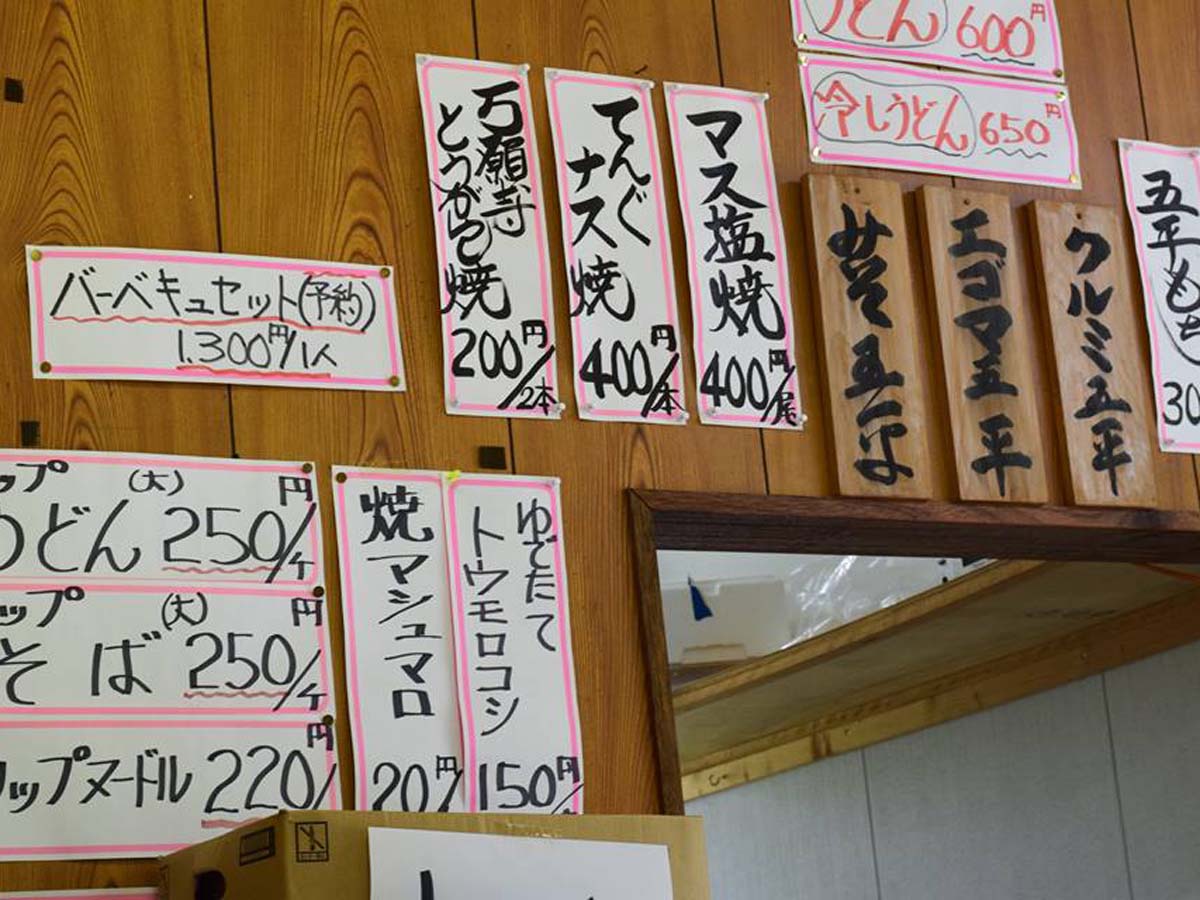 うどん 600円
冷しうどん 650円
五平もち
30
クルミ五平
エゴマ五平
みそ五平
マス塩焼
400円/尾
てんぐ
ナス焼
400円/本
万願寺
とうがらし焼
200円/2本
バーベキュセット(予約)
1.300円/1人
ップ (大)
うどん 250円/ケ
ップ (大)
そば 250円/ケ
ップヌードル 220円/
焼マシュマロ
20円/
ゆでたて
トウモロコシ
150円/